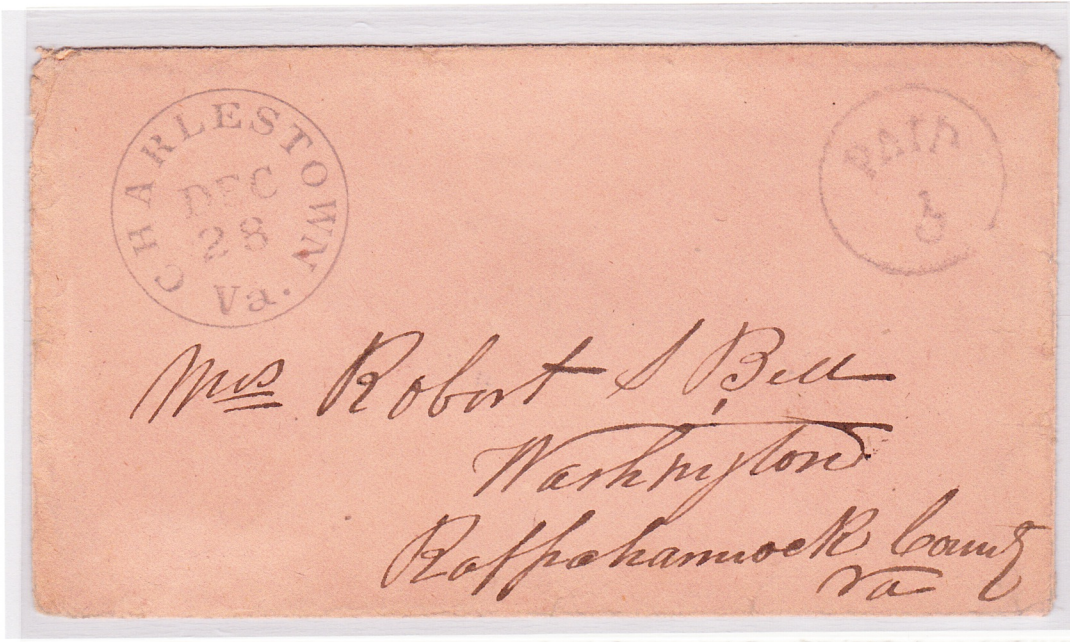 CHARLESTOWN
DEC
28
Va.
PAID
Mrs Robert S Bell
Washington
Rappahannock County
Va